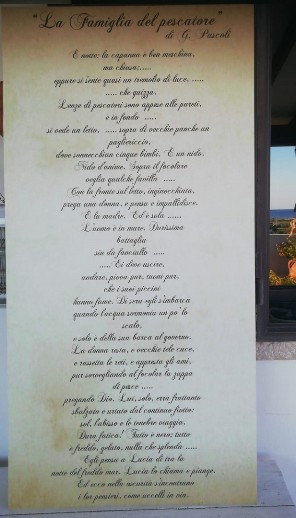 "La Famiglia del pescatore"
di G. Pascoli
È notte: la capanna è ben meschina,
ma chiusa;.....
eppure si sente quasi un tremolio di luce, .....
..... che guizza.
Lenze di pescatori sono appese alle pareti,
e in fondo .....
si vede un letto, ..... sopra di vecchie panche un
pagliericcio,
dove sonnecchian cinque bimbi. È un nido.
Nido d'anime. Sopra il focolare
veglia qualche favilla .....
Con la fronte sul letto, inginocchiata,
prega una donna, e pensa e impallidisce.
È la madre. Ed è sola ......
L'uomo è in mare. Durissima
battaglia
sin da fanciullo .....
..... Ei dève uscire,
andare, piova pur, tuoni pur,
che i suoi piccini
hanno fame. Di sera egli s'imbarca
quando l'acqua sormonta un po' lo
scalo,
e solo è dalla sua barca al governo.
La donna resta, e vecchie tele cuce,
e rassetta le reti, e appresta gli ami,
pur sorvegliando al focolar la zuppa
di pesce .....
pregando Dio. Lui, solo, erra frattanto
sbalzato e urtato dal continuo fiotto:
sul, l'abisso e le tenebre viaggia.
Dura fatica! Tutto è nero; tutto
è freddo, gelato, nulla che splenda .....
Egli pensa a Lucia di tra la
notte del freddo mar. Lucia lo chiama e piange.
Ed ecco nella oscurità s'incontrano
i lor pensieri, come uccelli in via.